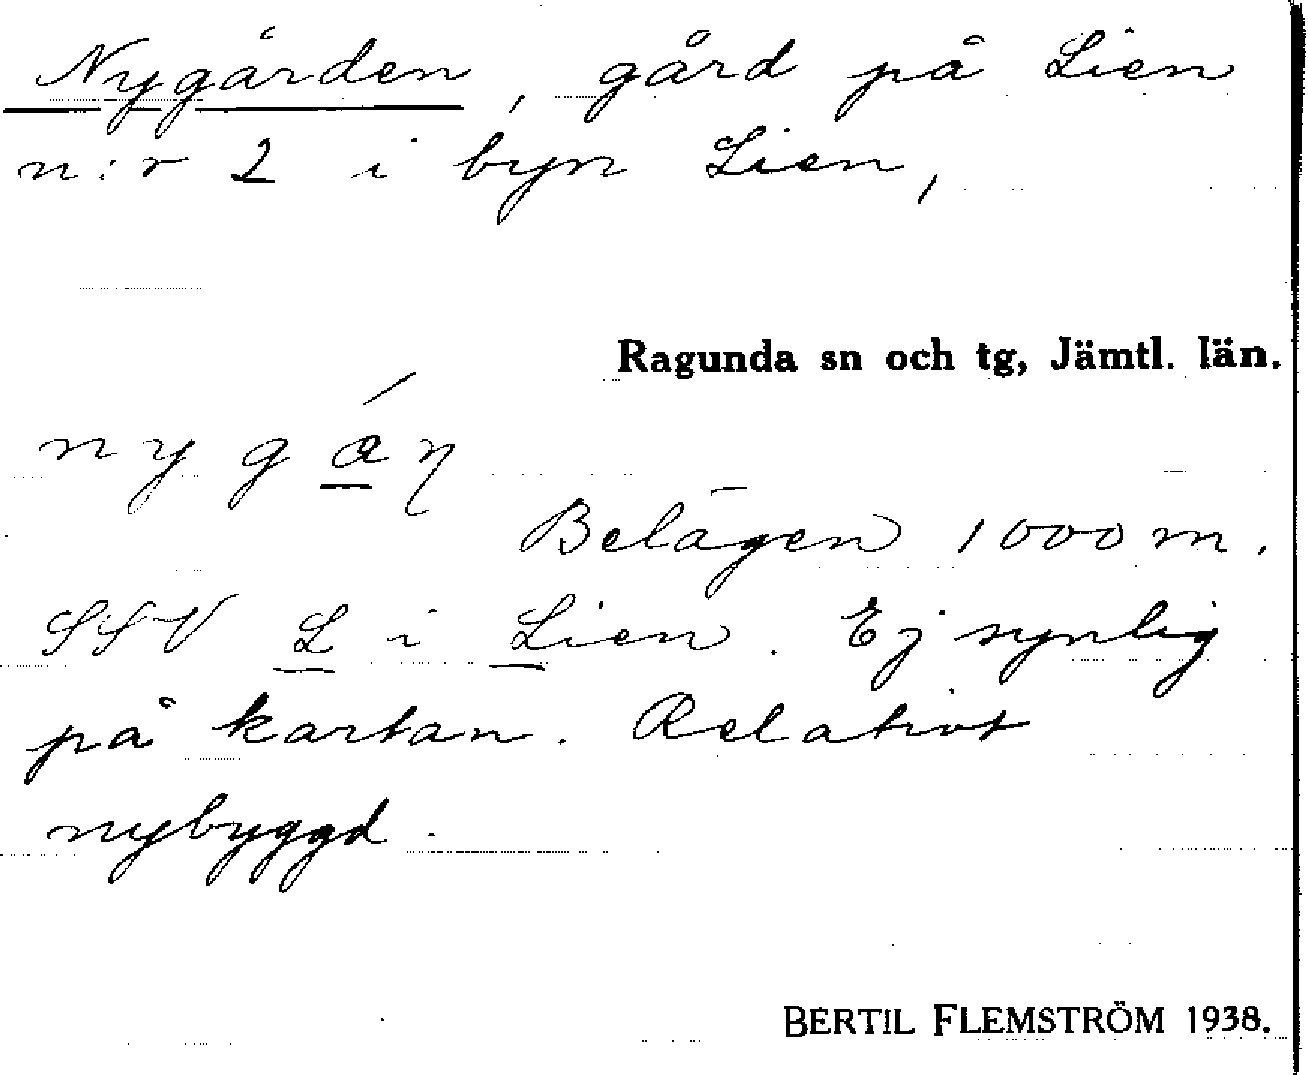 Nygården, gård på Lien
n:r 2 i byn Lien,
Ragunda sn och tg, Jämtl. län.
nygáη
Belägen 1000 m.
SSV L i Lien. Ej synlig
på kartan. Relativt
nybyggd.
BERTIL FLEMSTRÖM 1938.